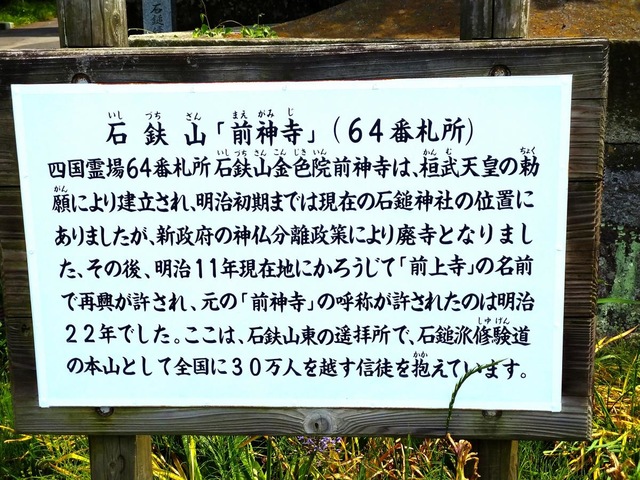 石鈇山「前神寺」(64番札所)
四国霊場64番札所石鈇山金色院前神寺は、桓武天皇の勅
願により建立され、明治初期までは現在の石鎚神社の位置に
ありましたが、新政府の神仏分離政策により廃寺となりまし
た、その後、明治11年現在地にかろうじて「前上寺」の名前
で再興が許され、元の「前神寺」の呼称が許されたのは明治
22年でした。ここは、石鈇山東の遥拝所で、石鎚派修験道
の本山として全国に30万人を越す信徒を抱えています。